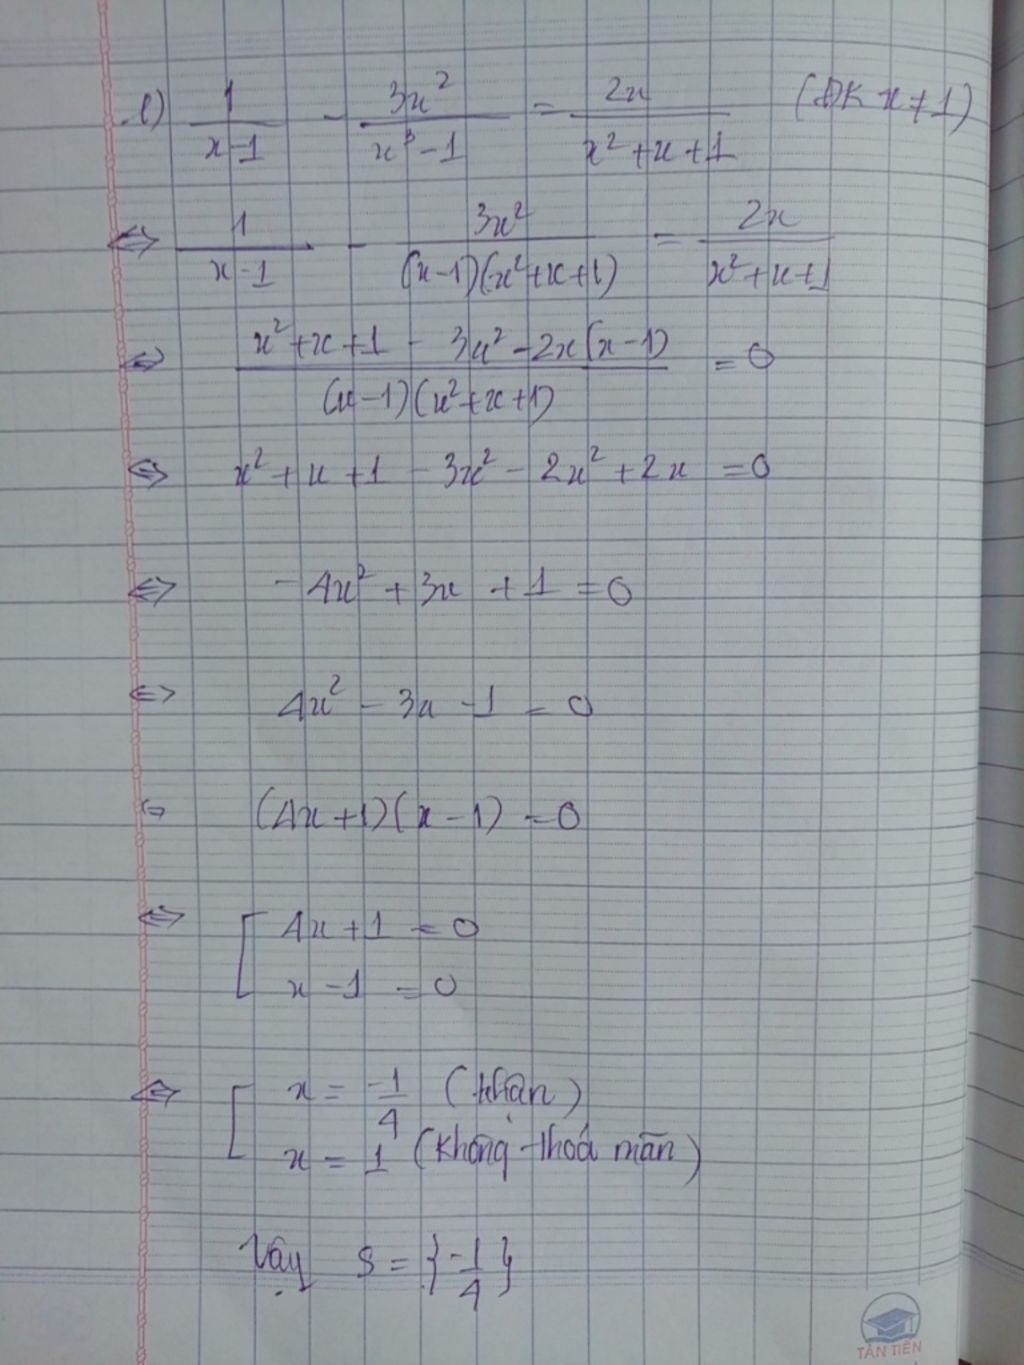 l) 1/(x-1) - 3x²/(x³-1) = 2x/(x²+x+1) (ĐK x ≠ 1)
⇔ 1/(x-1) - 3x²/((x-1)(x²+x+1)) = 2x/(x²+x+1)
⇔ (x²+x+1 - 3x² - 2x(x-1))/((x-1)(x²+x+1)) = 0
⇔ x² + x + 1 - 3x² - 2x² + 2x = 0
⇔ -4x² + 3x + 1 = 0
⇔ 4x² - 3x - 1 = 0
⇔ (4x+1)(x-1) = 0
⇔ [ 4x+1 = 0
x-1 = 0
⇔ [ x = -1/4 (nhận)
x = 1 (không thoả mãn)
Vậy S = {-1/4}
TÂN TIẾN